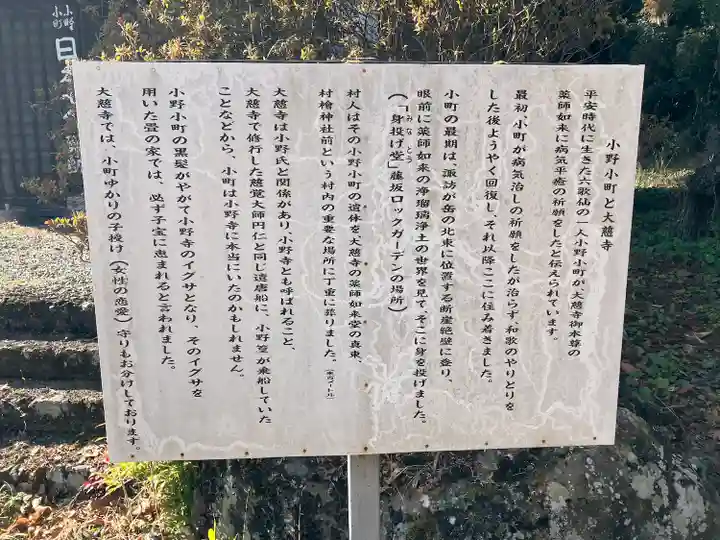 小野小町と大慈寺
平安時代に生きた六歌仙の一人小野小町が大慈寺御本尊の
薬師如来に病気平癒の祈願をしたと伝えられています。
最初、小町が病気治しの祈願をしたが治らず、和歌のやりとりを
した後ようやく回復し、それ以降ここに住み着きました。
小町の最期は、諏訪が岳の北東に位置する断崖絶壁に登り、
眼前に薬師如来の浄瑠璃浄土の世界を見て、そこに身を投げました。
(「身投げ堂」藤坂ロックガーデンの場所)
みなとう
村人はその小野小町の遺体を大慈寺の薬師如来堂の真東、
村檜神社前という村内の重要な場所に丁重に葬りました。
大慈寺は小野氏と関係があり、小野寺とも呼ばれること、
大慈寺で修行した慈覚大師円仁と同じ遣唐船に、小野篁が乗船していた
ことなどから、小町は小野寺に本当にいたのかもしれません。
小野小町の黒髪がやがて小野寺のイグサとなり、そのイグサを
用いた畳の家では、必ず子宝に恵まれると言われました。
大慈寺では、小町ゆかりの子授け(女性の恋愛)守りもお分けしております。
小野
小町
日